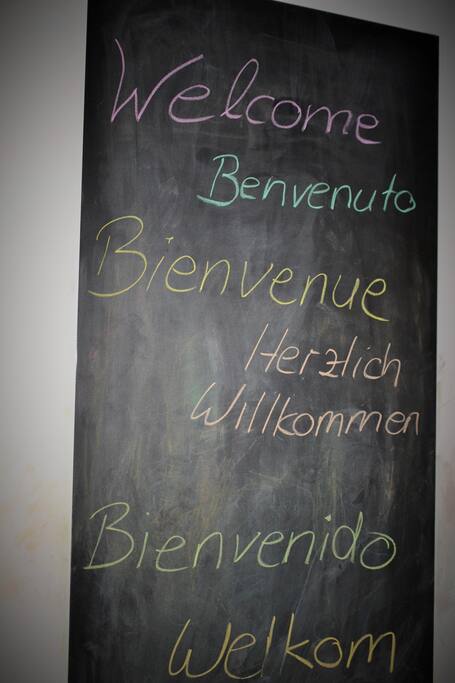 Welcome
Benvenuto
Bienvenue
Herzlich
Willkommen
Bienvenido
Welkom